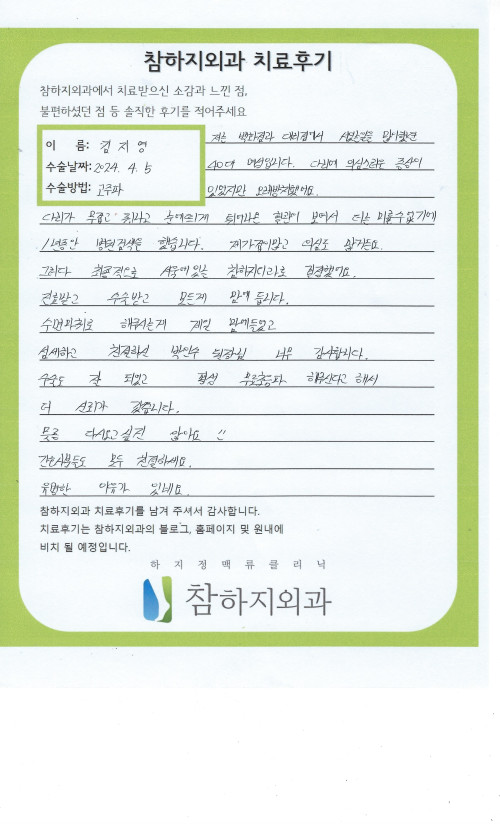 참하지외과 치료후기
참하지외과에서 치료받으신 소감과 느낀 점,
불편하셨던 점 등 솔직한 후기를 적어주세요
이 름: 김지영
수술날짜: 2024. 4. 5
수술방법: 고주파
저는 백화점과 대형점에서 서있는일을 많이했던
40대 여성입니다. 다리에 의심스러운 증상이
있었지만 오래방치했어요.
다리가 무겁고 저리고 후에 튀어나온 혈관이 보여서 더는 미룰수없기에
1년동안 병원검색을 했습니다. 제가 겁이많고 의심도 많거든요.
그러다 최종적으로 서울에있는 참하지외과로 결정했어요.
진료받고 수술받고 모든게 맘에 듭니다.
수면마취로 해주시는게 제일 맘에들었고
섬세하고 친절하신 박인수 원장님 너무 감사합니다.
수술도 잘 되었고 평생 무료초음파 해주신다고 해서
더 신뢰가 갔습니다.
못쓴 다시오고싶진 않아요 !!
간호사분들도 모두 친절하세요.
유명한 이유가 있네요.
참하지외과 치료후기를 남겨 주셔서 감사합니다.
치료후기는 참하지외과의 블로그, 홈페이지 및 원내에
비치 될 예정입니다.
하지정맥류클리닉
참하지외과